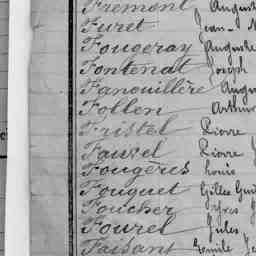 Fremont Auguste
Furet Jean-
Fougeray Auguste
Fontenat Joseph
Fanouillère Augu
Follen Arthur
Fristel Pierre
Fauvel Pierre J
Fougères Louis
Fouquet Gilles Gui
Foucher Yves
Fourel Jules
Faisant Emile Je